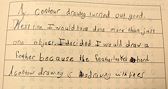 My contour drawing turned out good.
Next time I would have done more than just
one object. I decided I would draw a
feather because the feather hand
A contour drawing is drawing with lines